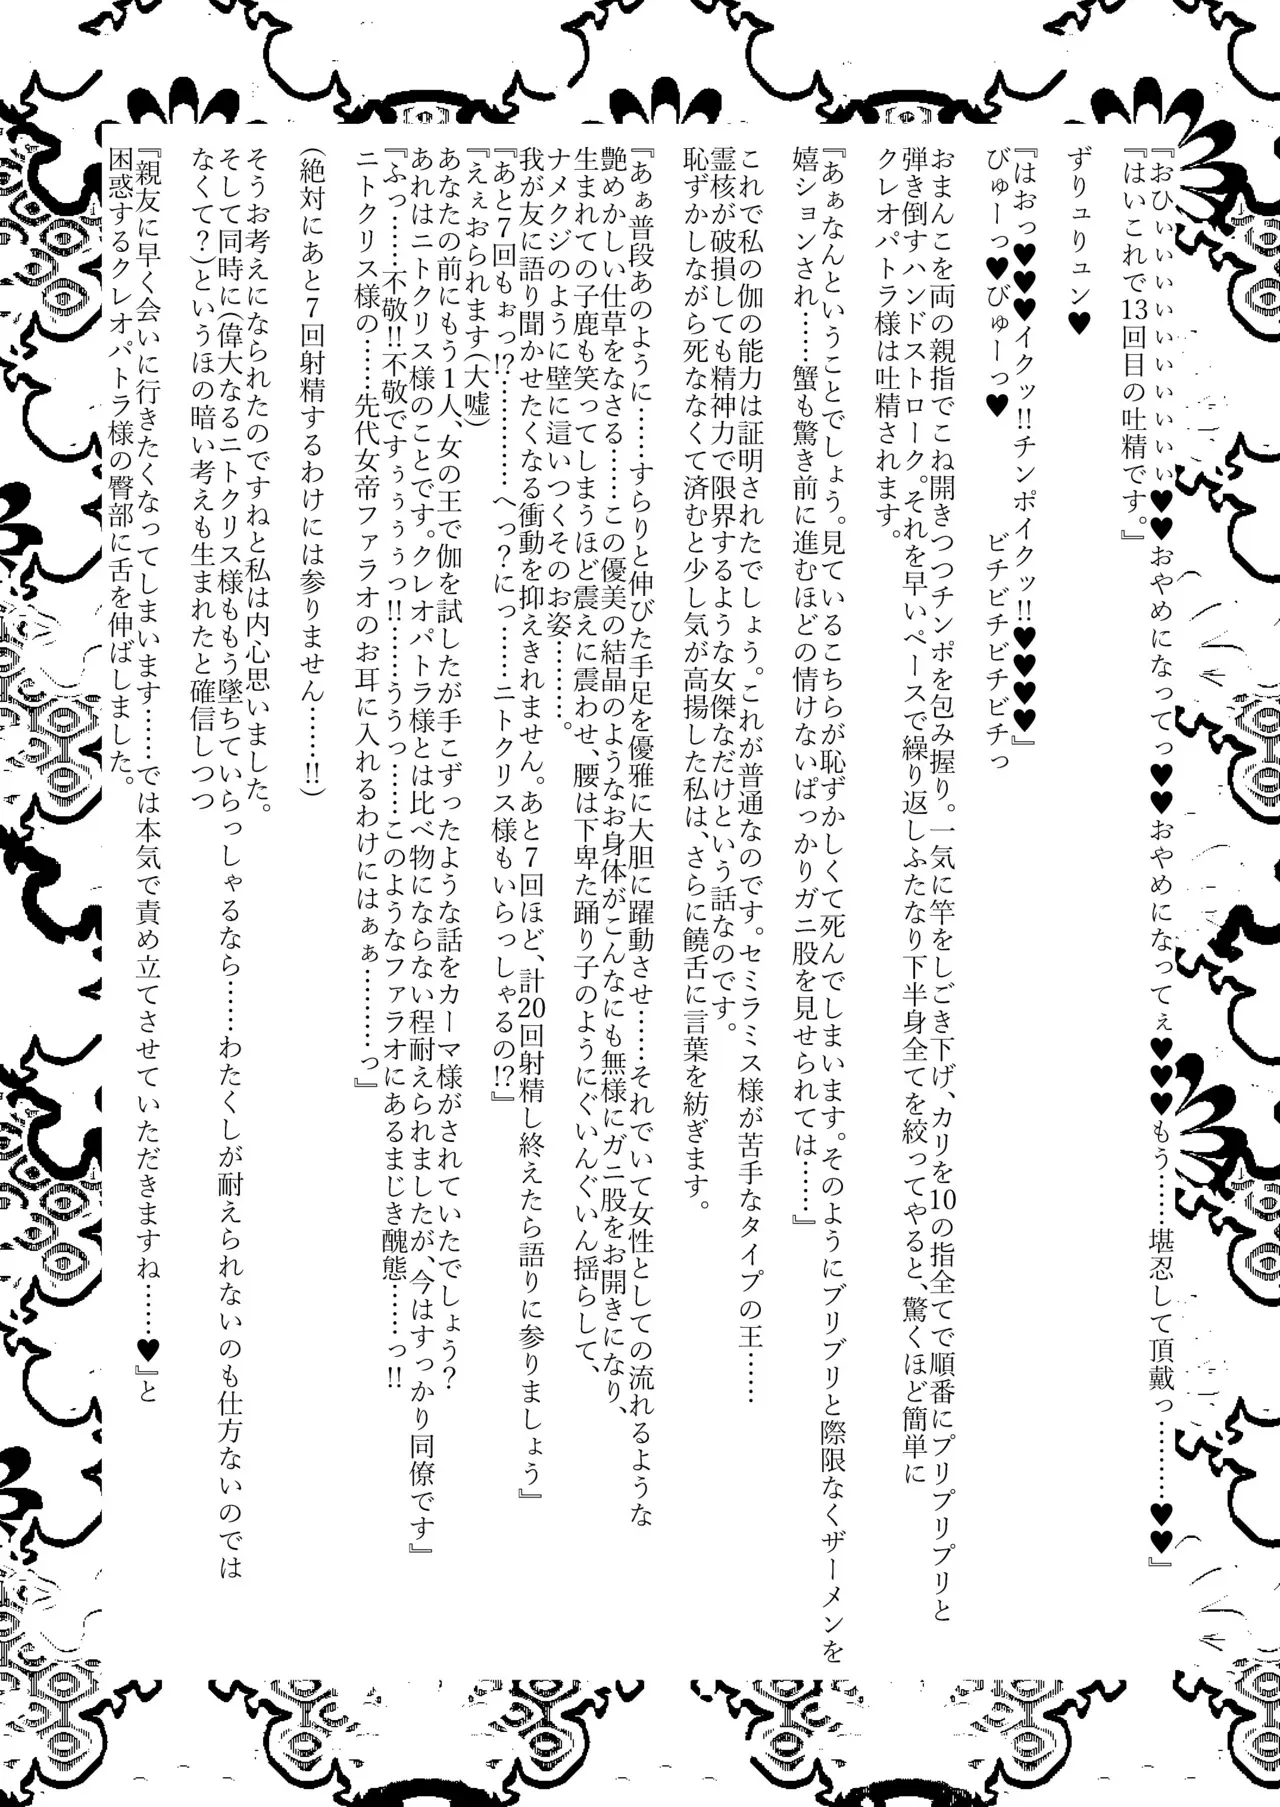 『おひぃいぃいぃいぃいぃいぃぃ♥♥おやめになってっ♥♥おやめになってぇ♥♥♥もう……堪忍して頂戴っ………♥♥』
『はいこれで13回目の吐精です。』
ずりュりュン♥
『はおっ♥♥♥イクッ!!チンポイクッ!!♥♥♥♥』
びゅーっ♥びゅーっ♥　ビチビチビチビチっ
おまんこを両の親指でこね開きつつチンポを包み握り。一気に竿をしごき下げ、カリを10の指全てで順番にプリプリプリと
弾き倒すハンドストローク。それを早いペースで繰り返しふたなり下半身全てを絞ってやると、驚くほど簡単に
クレオパトラ様は吐精されます。
『あぁなんということでしょう。見ているこちらが恥ずかしくて死んでしまいます。そのようにブリブリと際限なくザーメンを
嬉ションされ……蟹も驚き前に進むほどの情けないぱっかりガニ股を見せられては……』
これで私の伽の能力は証明されたでしょう。これが普通なのです。セミラミス様が苦手なタイプの王……
霊核が破損しても精神力で限界するような女傑なだけという話なのです。
恥ずかしながら死ななくて済むと少し気が高揚した私は、さらに饒舌に言葉を紡ぎます。
『あぁ普段あのように……すらりと伸びた手足を優雅に大胆に躍動させ……それでいて女性としての流れるような
艶めかしい仕草をなさる……この優美の結晶のようなお身体がこんなにも無様にガニ股をお開きになり、
生まれての子鹿も笑ってしまうほど震えに震わせ、腰は下卑た踊り子のようにぐいんぐいん揺らして、
ナメクジのように壁に這いつくそのお姿………。
我が友に語り聞かせたくなる衝動を抑えきれません。あと7回ほど、計20回射精し終えたら語りに参りましょう』
『あと7回もぉっ!?…………へっ？にっ……ニトクリス様もいらっしゃるの!?』
『えぇおられます(大嘘)
あなたの前にもう1人、女の王で伽を試したが手こずったような話をカーマ様がされていたでしょう？
あれはニトクリス様のことです。クレオパトラ様とは比べ物にならない程耐えられましたが、今はすっかり同僚です』
『ふっ……不敬!!不敬ですぅぅぅぅっ!!……ううっ……このようなファラオにあるまじき醜態……っ!!
ニトクリス様の……先代女帝ファラオのお耳に入れるわけにはぁぁ………っ』
(絶対にあと7回射精するわけには参りません……!!)
そうお考えになられたのですねと私は内心思いました。
そして同時に(偉大なるニトクリス様ももう墜ちていらっしゃるなら……わたくしが耐えられないのも仕方ないのでは
なくて？)というほの暗い考えも生まれたと確信しつつ
『親友に早く会いに行きたくなってしまいます……では本気で責め立てさせていただきますね……♥』と
困惑するクレオパトラ様の臀部に舌を伸ばしました。